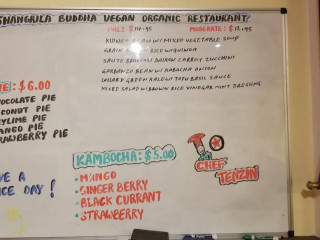 SHANGRILA BUDDHA VEGAN ORGANIC RESTAURANT
MODERATE: $
KIDNEY BEAN W/ MIXED VEGETABLE SOUP
GRAIN RICE W/ QUINOA
SAUTE BROCCOLI DAIKON CARROT ZUCCHINI
GARBANZO BEAN W/ KABOCHA ONION
COLLARD GREEN KALE W/ TOFU BASIL SAUCE
MIXED SALAD W/ BROWN RICE VINEGAR MINT DRESSING
E: $6.00
HOCOLATE PIE
CONUT PIE
EYLIME PIE
ANGO PIE
RAWBERRY PIE
KAMBOCHA: $5.00
• MANGO
• GINGER BERRY
• BLACK CURRANT
• STRAWBERRY
VE A
ICE DAY!
CHEF
TENZIN